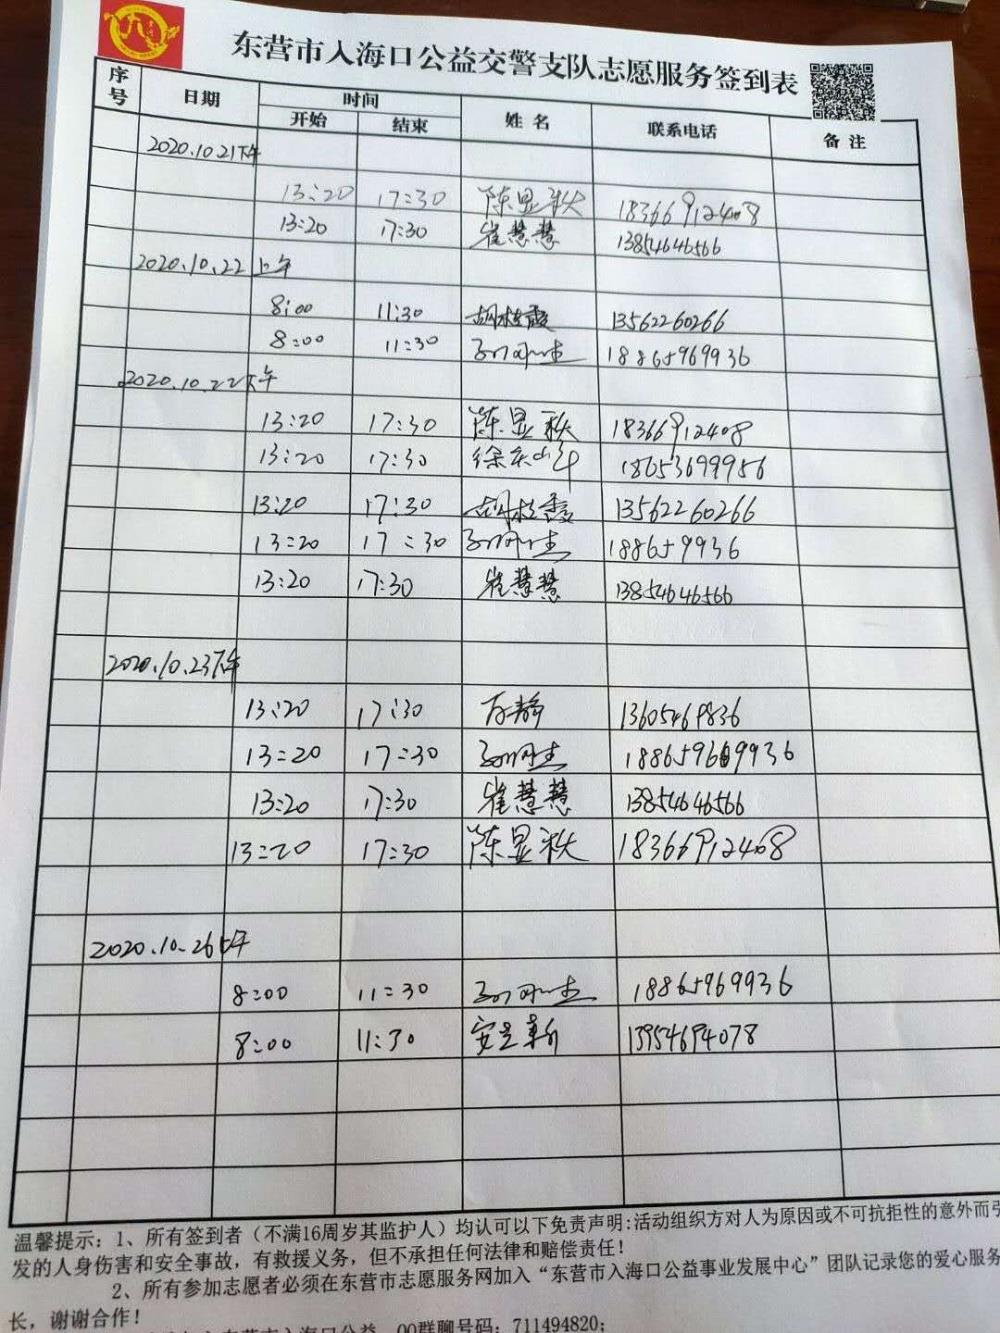 东营市入海口公益交警支队志愿服务签到表
序号 日期 时间 姓名 联系电话 备注
开始 结束
2020.10.21下午
13:20 17:30 陈显秩 18366912408
13:20 17:30 崔慧慧 13854646566
2020.10.22上午
8:00 11:30 胡枝霞 13562260266
8:00 11:30 18865969936
2020.10.22下午
13:20 17:30 陈显秩 18366912408
13:20 17:30 18653699956
13:20 17:30 胡枝霞 13562260266
13:20 17:30 188659936
13:20 17:30 崔慧慧 13854646566
2020.10.23下午
13:20 17:30 13605469836
13:20 17:30 188659669936
13:20 17:30 崔慧慧 13854646566
13:20 17:30 陈显秩 18366912408
2020.10.26上午
8:00 11:30 18865969936
8:00 11:30 13954694078
温馨提示：1、所有签到者（不满16周岁其监护人）均认可以下免责声明:活动组织方对人为原因或不可抗拒性的意外而引
发的人身伤害和安全事故，有救援义务，但不承担任何法律和赔偿责任！
2、所有参加志愿者必须在东营市志愿服务网加入“东营市入海口公益事业发展中心”团队记录您的爱心服务
长，谢谢合作！
东营市入海口公益 QQ群聊号码：711494820;